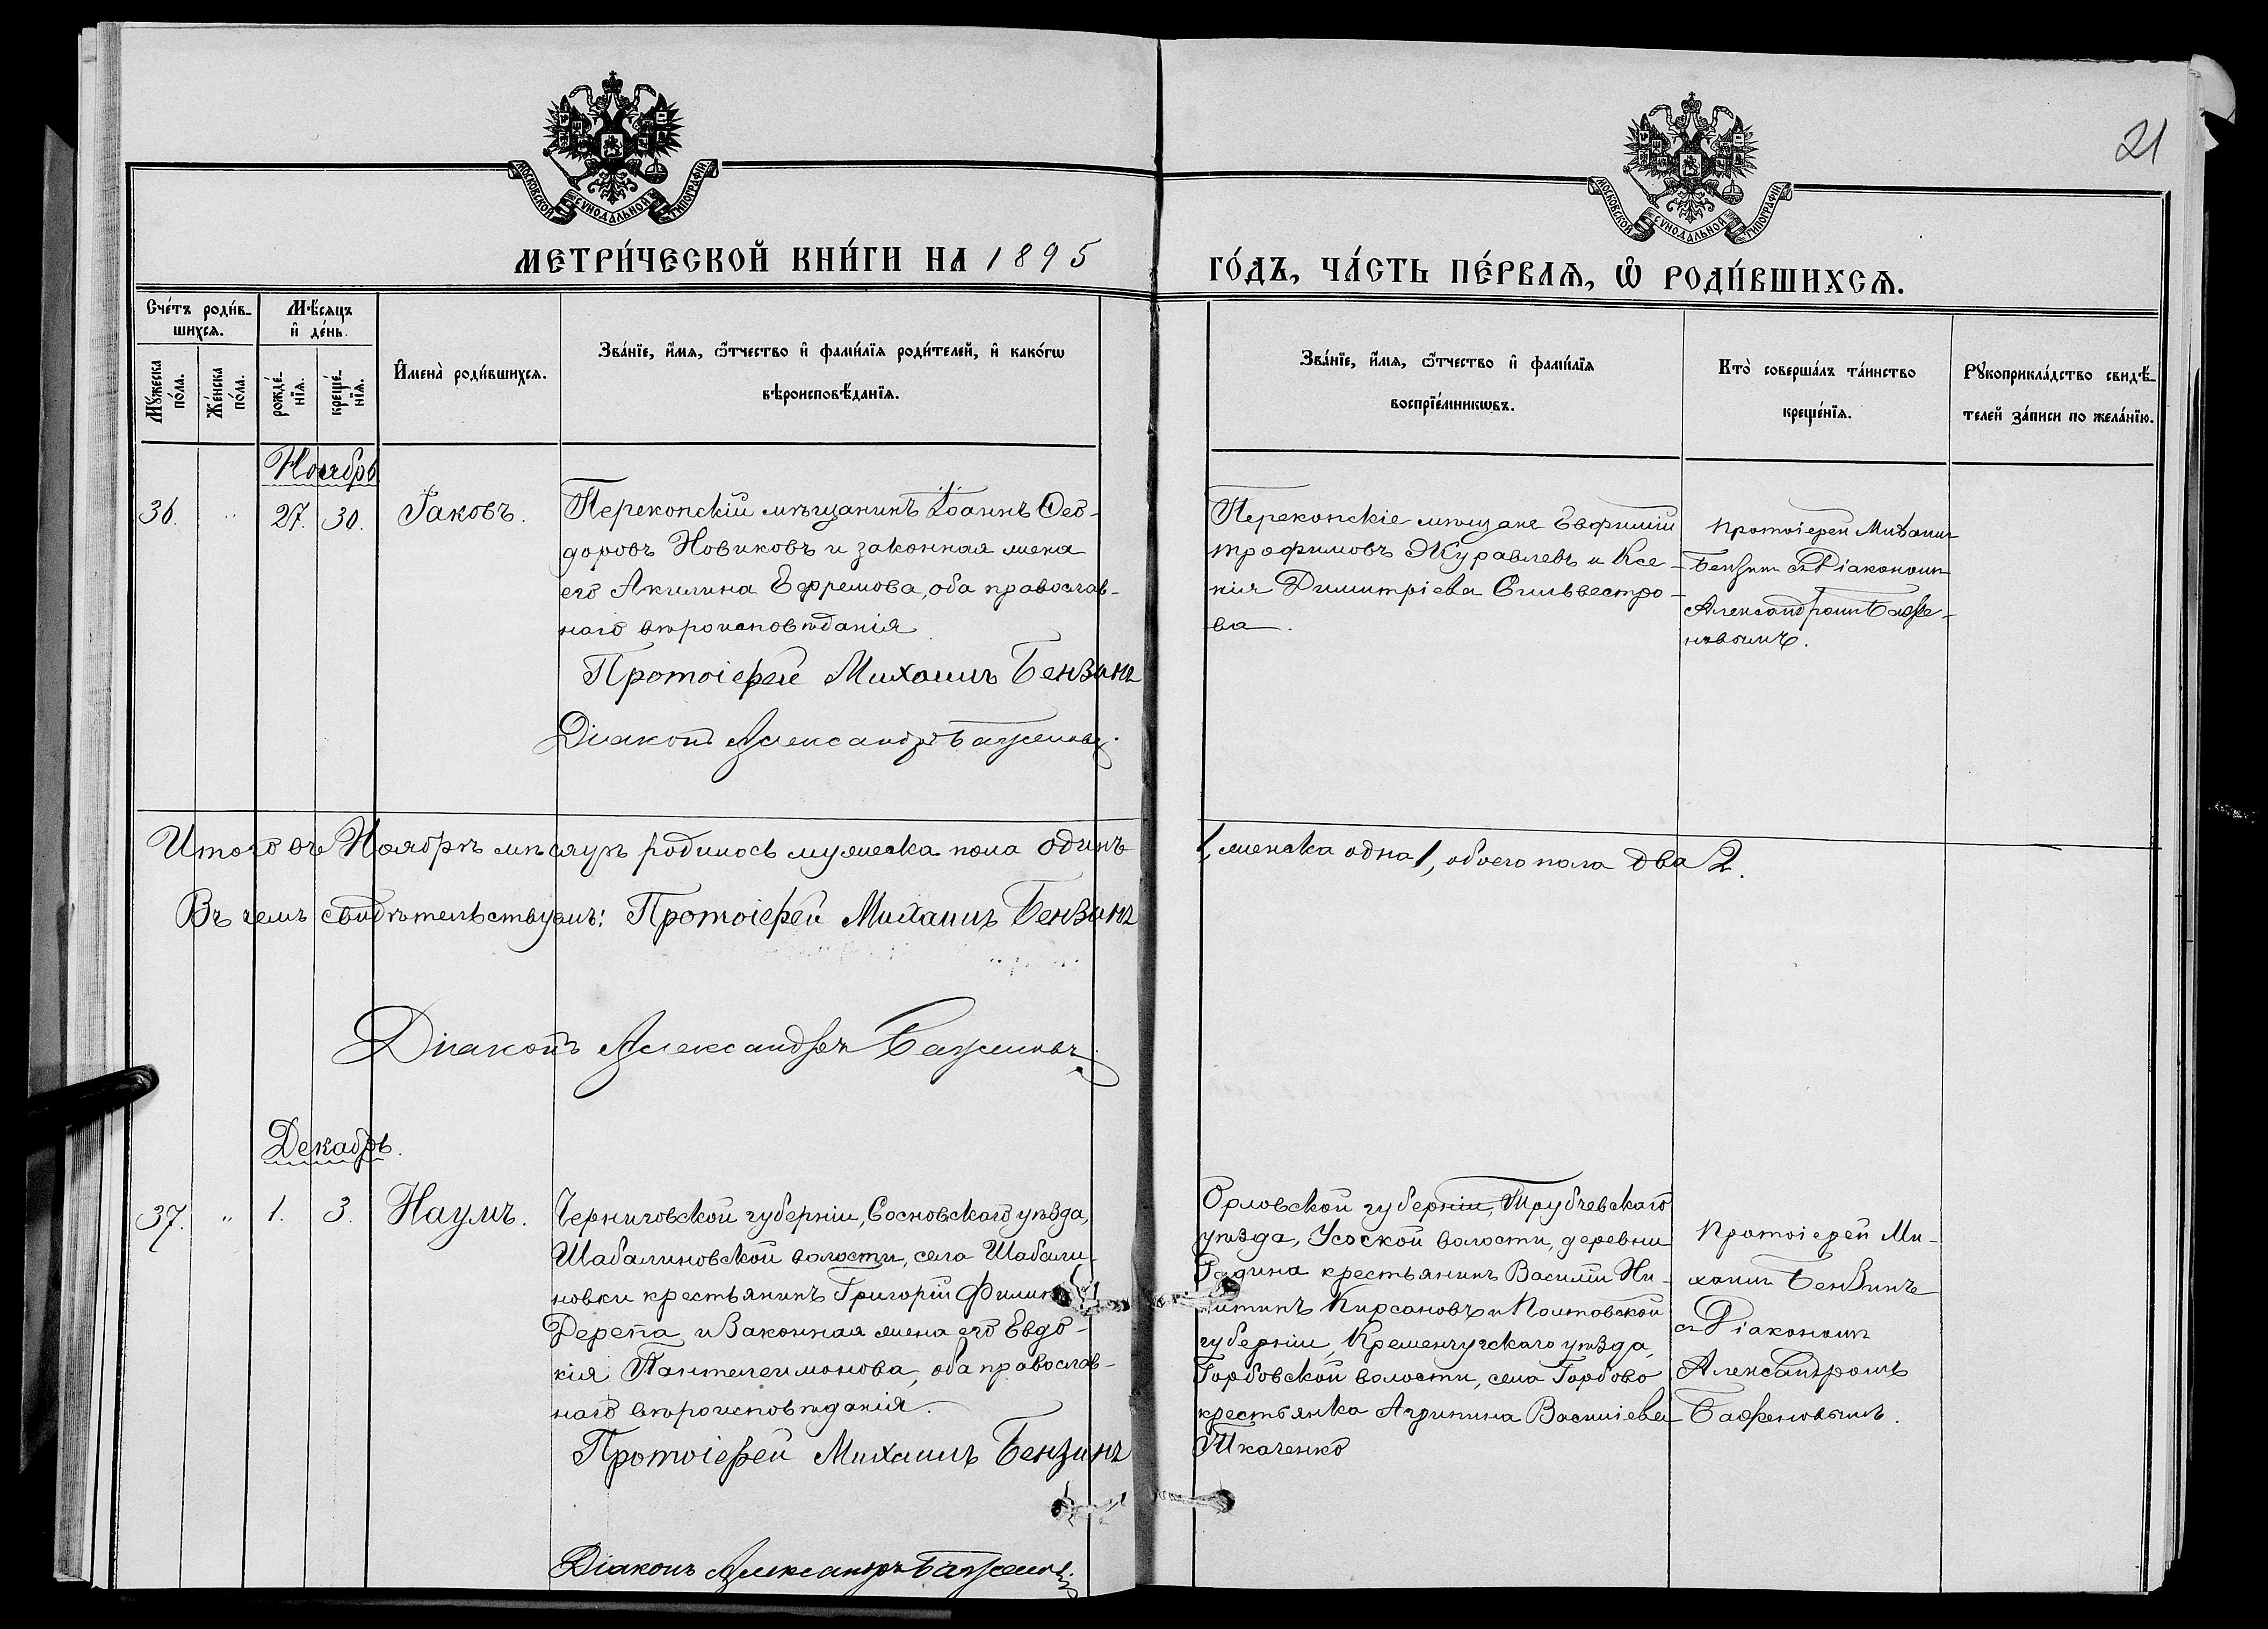 21
МОСКОВСКОЙ СѴНОДАЛЬНОЙ ТИПОГРАФІИ
МОСКОВСКОЙ СѴНОДАЛЬНОЙ ТИПОГРАФІИ
МЕТРИ́ЧЕСКОЙ КНИ́ГИ НА 1895
ГО́ДЪ, ЧА́СТЬ ПЕ́РВАѦ, Ѽ РОДИ́ВШИХСѦ.
Сче́тъ роди́в-
шихсѧ.
Мꙋжеска
по́ла.
Же́нска
по́ла.
Мѣ́сяцъ
и҆ де́нь.
рожде́-
нїѧ.
креще́-
нїѧ.
И҆мена̀ роди́вшихсѧ.
Зва́нїе, и҆́мѧ, ѻ҆́тчество и҆ фами́лїѧ роди́телей, и҆ како́гѡ
вѣроисповѣ́данїѧ.
Зва́нїе, и҆́мѧ, ѻ҆́тчество и҆ фами́лїѧ
воспрїе́мникѡвъ.
Кто̀ соверша́лъ та́инство
креще́нїѧ.
Рꙋкоприкла́дство свидѣ́-
телей за́писи по жела́нїю.
Ноябрь
36. " 27. 30. Іаковъ.
Перекопскій мѣщанинъ Іоаннъ Ѳео-
доровъ Новиковъ и законная жена
его Акилина Ефремова, оба православ-
наго вѣроисповѣданія
Протоіерей Михаилъ Бензинъ
Діаконъ Александръ Баженовъ.
Перекопскіе мѣщане Евфимій
Трофимовъ Журавлевъ и Ксе-
нія Димитріева Сильвестро-
ва.
Протоіерей Михаилъ
Бензинъ съ Діакономъ
Александромъ Баже-
новымъ.
Итого въ Ноябрѣ мѣсяцѣ родилось мужеска пола одинъ
1, женска одна 1, обоего пола два 2.
Въ чемъ свидѣтельствуемъ: Протоіерей Михаилъ Бензинъ
Діаконъ Александръ Баженовъ
Декабрь.
37. " 1. 3. Наумъ.
Черниговской губерніи, Сосновскаго уѣзда,
Шабалиновской волости, села Шабали-
новки крестьянинъ Григорій
Дерепа и законная жена его Евдо-
кія Пантелеимонова, оба православ-
наго вѣроисповѣданія.
Протоіерей Михаилъ Бензинъ
Діаконъ Александръ Баженовъ
Орловской губерніи, Трубчевскаго
уѣзда, Усоской волости, деревни
крестьянинъ Василій Ни-
китинъ Кирсановъ и Полтовской
губерніи, Кременчугскаго уѣзда,
Горбовской волости, села Горбово
крестьянка Агрипина Василіева
Ткаченко
Протоіерей Ми-
хаилъ Бензинъ
съ Діакономъ
Александромъ
Баженовымъ.